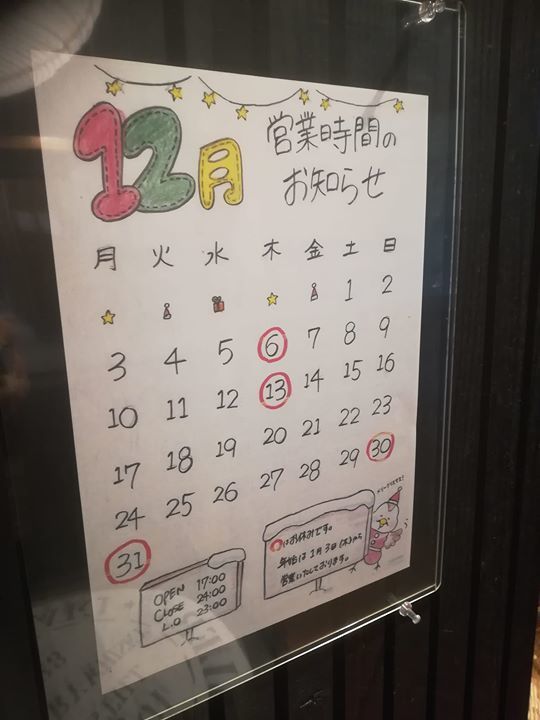 12月
営業時間の
お知らせ
月 火 水 木 金 土 日
1 2
3 4 5 6 7 8 9
10 11 12 13 14 15 16
17 18 19 20 21 22 23
24 25 26 27 28 29 30
31
OPEN 17:00
CLOSE 24:00
L.O 23:00
はお休みです。
年始は1月3日(木)から
営業いたしております。